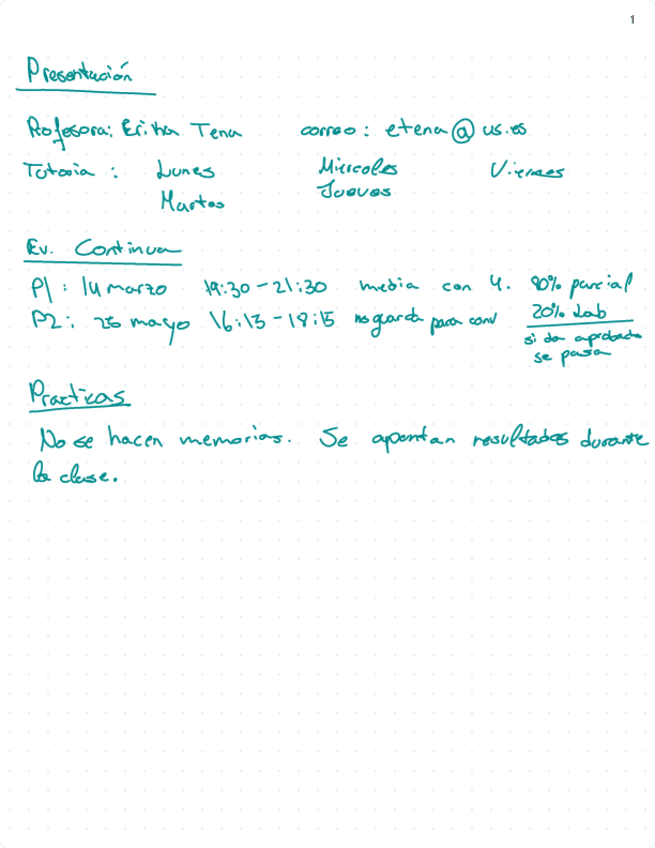 1
Presentación
Profesora: Erika Tena correo: etena@us.es
Tutoria : Lunes Miercoles Viernes
Martes Jueves
Ev. Continua
P1 : 14 marzo 19:30-21:30 media con 4. 80% parcial
P2 : 26 mayo 16:15-18:15 no guarda para conv 20% Lab
si da aprobado
se pasa
Practicas
No se hacen memorias. Se apuntan resultados durante
la clase.